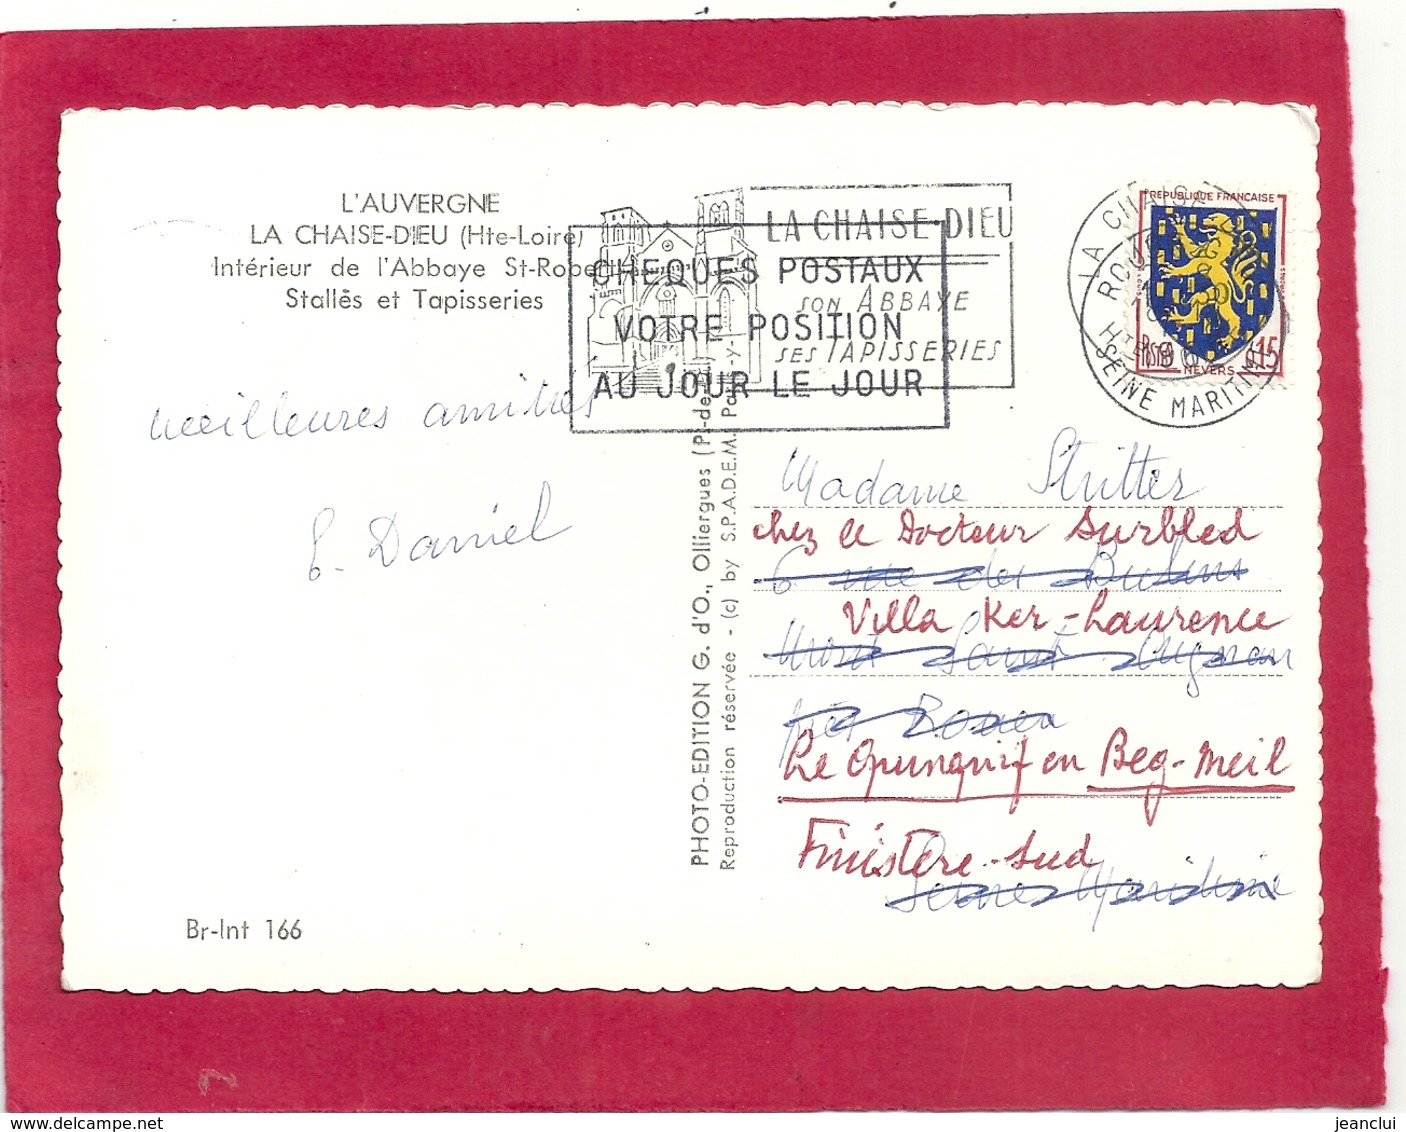 L'AUVERGNE
LA CHAISE-DIEU (Hte-Loire)
Intérieur de l'Abbaye St-Robert
Stallès et Tapisseries
meilleures amitiés
E. Daniel
Br-Int 166
PHOTO-EDITION G. d'O., Olliergues (P.-de-D.)
Reproduction réservée - (c) by S.P.A.D.E.M. Paris-y-
LA CHAISE-DIEU
SON ABBAYE
SES TAPISSERIES
CHEQUES POSTAUX
VOTRE POSITION
AU JOUR LE JOUR
LA CHAISE
ROUEN
SEINE MARITIME
REPUBLIQUE FRANÇAISE
POSTES 0,15
NEVERS
Madame Stritter
chez le Docteur Surbled
6 rue des
Villa Ker-Laurence
Mont Saint Aignan
près Rouen
Le en Beg-Meil
Finistère-Sud
Seine Maritime
jeanclui